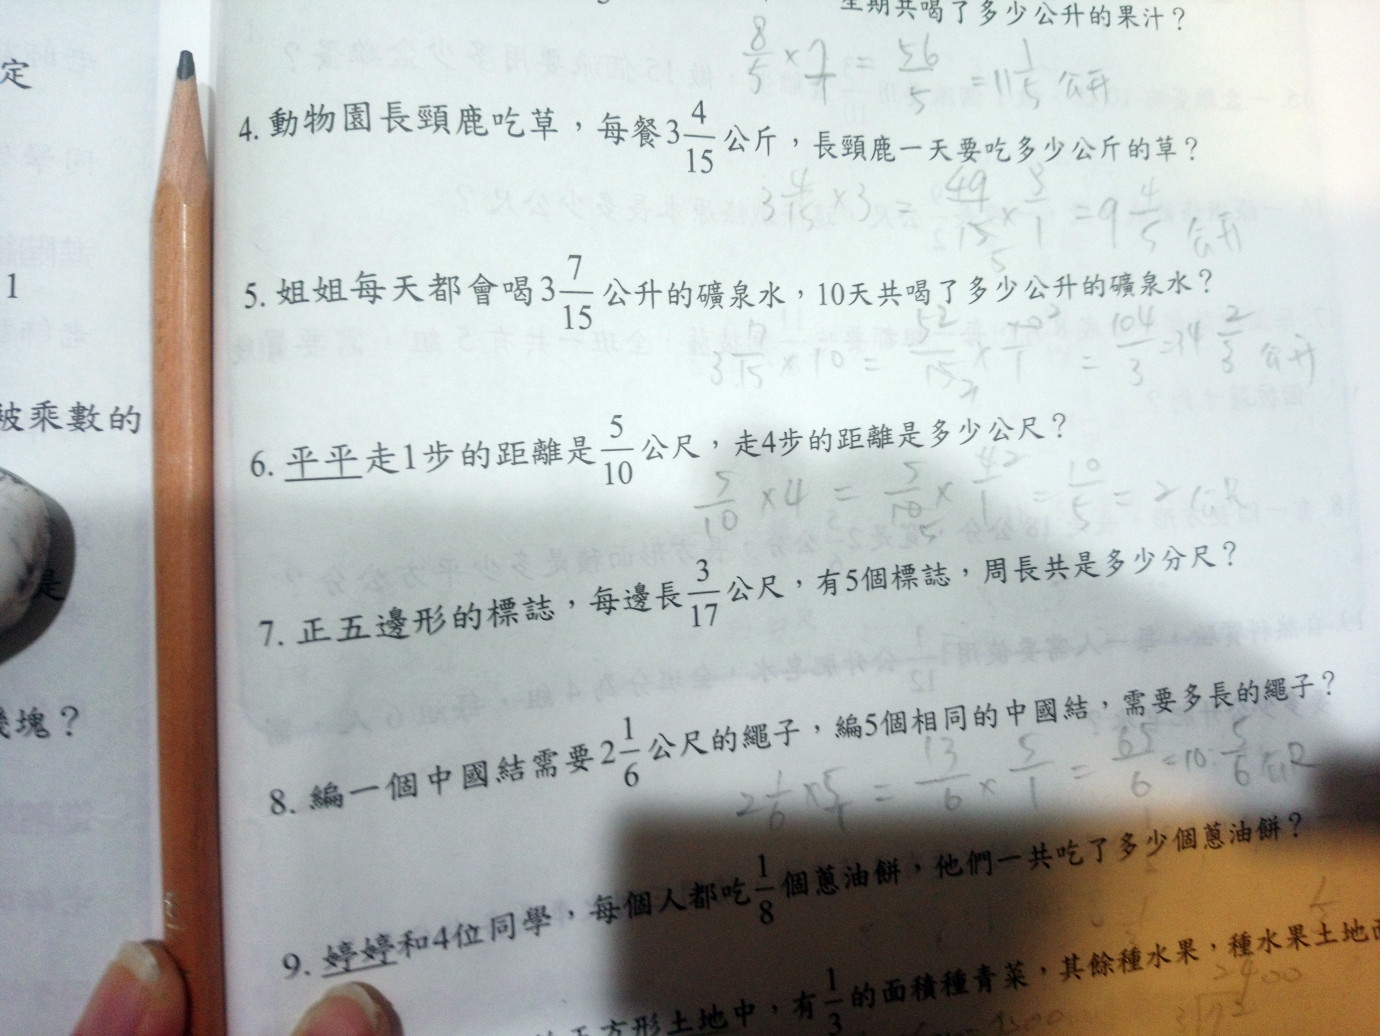 星期共喝了多少公升的果汁？
8/5 × 7/1 = 56/5 = 11 1/5 公升
定
4. 動物園長頸鹿吃草，每餐3 4/15 公斤，長頸鹿一天要吃多少公斤的草？
3 4/15 × 3 = 49/15 × 3/1 = 9 4/5 公升
1
5. 姐姐每天都會喝3 7/15 公升的礦泉水，10天共喝了多少公升的礦泉水？
3 7/15 × 10 = 52/15 × 10/1 = 104/3 = 34 2/3 公升
被乘數的
6. 平平走1步的距離是 5/10 公尺，走4步的距離是多少公尺？
5/10 × 4 = 5/10 × 4/1 = 10/5 = 2 公尺
是
7. 正五邊形的標誌，每邊長 3/17 公尺，有5個標誌，周長共是多少分尺？
幾塊？
8. 編一個中國結需要2 1/6 公尺的繩子，編5個相同的中國結，需要多長的繩子？
2 1/6 × 5/1 = 13/6 × 5/1 = 65/6 = 10 5/6 公尺
9. 婷婷和4位同學，每個人都吃 1/8 個蔥油餅，他們一共吃了多少個蔥油餅？
正方形土地中，有 1/3 的面積種青菜，其餘種水果，種水果土地面